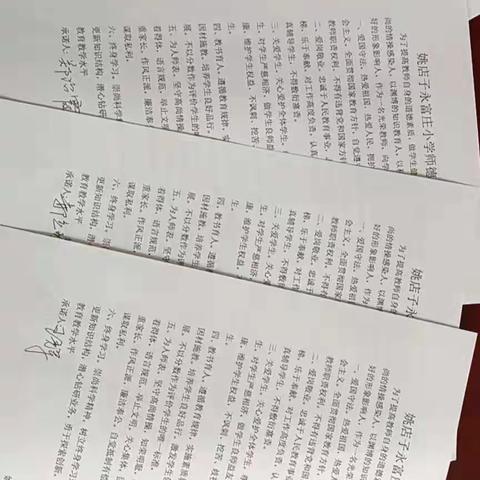 姚店子永富庄小学师德
为了提高教师自身的道德素质，做学生健
尚的情操感染人，以渊博的知识教育人，以科
好的形象影响人，作为一名光荣教师，向学
一、爱国守法。热爱祖国，热爱人民，拥护
会主义。全面贯彻国家教育方针，自觉遵
教师职责权利。不得有违背党和国家方针
二、爱岗敬业。忠诚于人民教育事业，
梯，乐于奉献。对工作高度负责，认真
真辅导学生。不得敷衍塞责。
三、关爱学生。关心爱护全体学生，
生。对学生严慈相济，做学生良师益
康，维护学生权益。不讽刺、挖苦、
生。
四、教书育人。遵循教育规律，实
因材施教。培养学生良好品行，
展。不以分数作为评价学生的
五、为人师表。坚守高尚情操，
着得体，语言规范，举止文明
重家长。作风正派，廉洁奉
谋取私利。
六、终身学习。崇尚科学
更新知识结构。潜心钻研
教育教学水平
承诺人：
姚店子永
为了提高教师自身的
尚的情操感染人，以渊博
好的形象影响人，作为
一、爱国守法。热爱祖
会主义。全面贯彻国家
教师职责权利。不得有
二、爱岗敬业。忠诚
梯，乐于奉献。对工作
真辅导学生。不得敷衍
三、关爱学生。关心
生。对学生严慈相济，
康，维护学生权益。
生。
四、教书育人。遵
因材施教。培养学生
展。不以分数作为
五、为人师表。坚
着得体，语言规范
重家长。作风正派
谋取私利。
六、终身学习。
更新知识结构。
教育教学水平
承诺人
姚店子永富
为了提高教师自身的道德
尚的情操感染人，以渊博的知识
好的形象影响人，作为一
一、爱国守法。热爱祖国，热爱
会主义。全面贯彻国家教育方针
教师职责权利。不得有违背党
二、爱岗敬业。忠诚于人民教育事业
梯，乐于奉献。对工作高度负责
真辅导学生。不得敷衍塞责。
三、关爱学生。关心爱护全体学生，
生。对学生严慈相济，做学生良师益友
康，维护学生权益。不讽刺、挖苦、歧
生。
四、教书育人。遵循教育规律，实施素质
因材施教。培养学生良好品行，激发学生
展。不以分数作为评价学生的唯一标准。
五、为人师表。坚守高尚情操，知荣明耻，
着得体，语言规范，举止文明。关心集体，
重家长。作风正派，廉洁奉公。自觉抵制有偿
谋取私利。
六、终身学习。崇尚科学精神，树立终身学习
更新知识结构。潜心钻研业务，勇于探索创新，
教育教学水平
承诺人